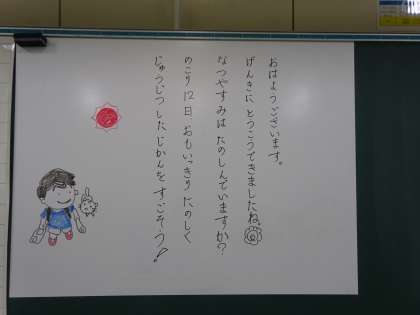 おはようございます。
げんきに とうこうできましたね
なつやすみは たのしんでいますか？
のこり 12日 おもいっきり たのしく
じゅうじつ したじかんを すごそう！